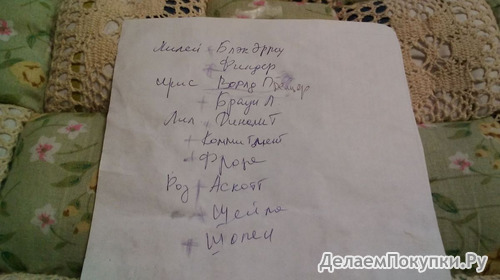 Лилей + Блэк Эрроу
+ Финдер
Ирис Ворлд Премьер
+ Браун Л
Лил + Финолит
+ Коммитмент
+ Флоре
Роз + Аскотт
+ Шейла
+ Шопен
ДелаемПокупки.Ру